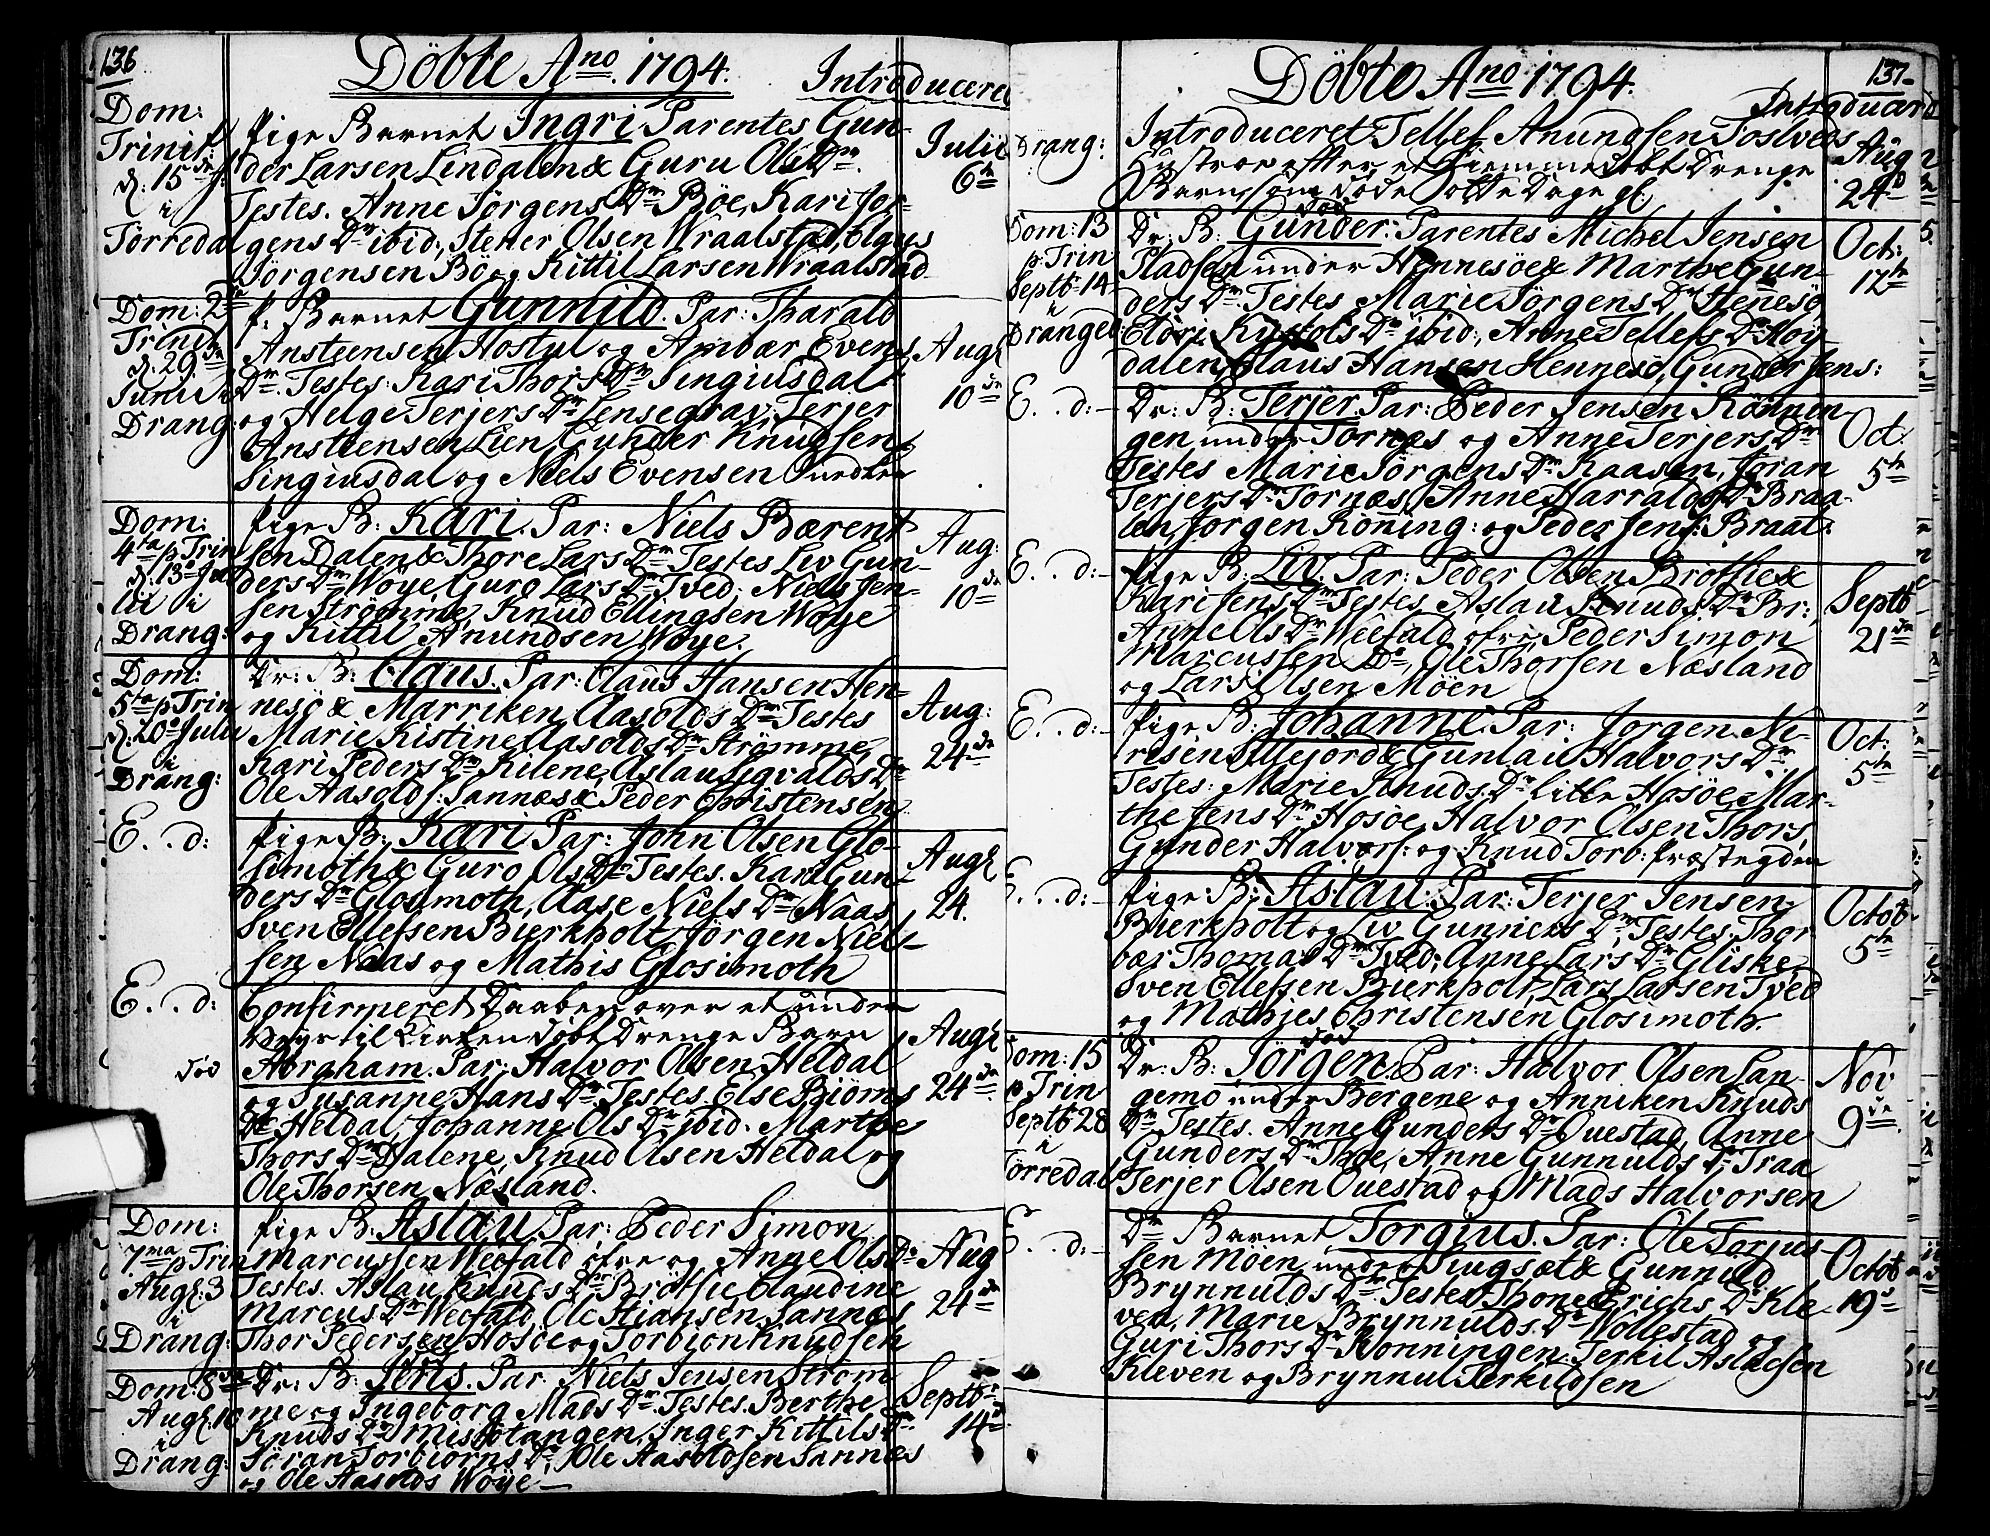 136
Döbte Ano. 1794.
Introduceret
Dom:
Trinit:
d. 15de J:
i
Törredal
Pige Barnet Ingri. Parentes Gun-
der Larsen Lindalen & Guru Ols Dr.
Testes. Anne Jörgens Dr Böe, Kari Jör-
gens Dr ibid, Stener Olsen Wraalstad, Claus
Jörgensen Bö og Kittil Larsen Wraalstad
Julii
6te
Dom: 2da
Trinit
d. 29de
Junii i
Drang:
P. Barnet Gunnild. Par: Tharald
Ansteensen Hostul og Ambær Evens
Dr. Testes: Kari Thors Dr Singiusdal
og Helge Terjers Dr Lensegrav, Terjer
Ansteensen Lien, Gunder Knudsen
Singiusdal og Niels Evensen
Augl
10de
Dom:
4ta p Trin
d. 13de Ju-
lii i
Drang:
Pige B: Kari. Par: Niels Bærent
sen Dalen & Thore Lars Dr Testes Liv Gun-
ders Dr Wöye, Guro Lars Dr Tved, Niels Jen-
sen Strömme, Knud Ellingsen Wöye
og Kittil Anundsen Wöye.
Aug:
10de
Dom:
5ta p Trin
d. 20de Julii
i
Drang:
Dr: B: Claus. Par: Claus Hansen Hen-
nesö & Marriken Aasolds Dr Testes
Marie Kistine Aasolds Dr Strömme,
Kari Peders Dr Kilene, Aslau Sigvalds Dr
Ole Aasolds: Sannæs & Peder Christensen
Aug:
24de
E. . d:
Pige B: Kari Par: John Olsen Glo-
simoth & Guro Ols Dr Testes. Kari Gun-
ders Dr Glosimoth, Aase Niels Dr Naas,
Sven Ellefsen Bierkholt, Jörgen Niel-
sen Naas og Mathis Glosimoth
Augl
24.
E. . d:
död
Confirmeret Daaben over et under
Veys til Kirken döbt Drenge Barn
Abraham. Par: Halvor Olsen Heldal
og Susanne Hans Dr Testes. Else Biörns
Dr Heldal, Johanne Ols Dr ibid. Marthe
Thors Dr Dalene, Knud Olsen Heldal og
Ole Thorsen Næsland.
Augl
24de
Dom:
7ma p Trin
Augl. 3
i
Drang:
Pige B: Aslau Par: Peder Simon
Marcussen Weefald öfre og Anne Ols Dr
Testes. Aslau Knuds Dr Brötsie Claudine
Marcus Dr Weefald, Ole Stiansen Sannæs
Thor Pedersen Hosöe og Torbiörn Knudsen
Aug
24de
Dom: 8de
Augl. 10
i
Drang:
Dr: B: Jens. Par Niels Jensen Ström
me og Ingeborg Mads Dr Testes. Berthe
Knuds Dr Smistotangen, Inger Kittils Dr
Jöran Torbiörns Dr, Ole Aasoldsen Sannæs
og Ole Aasolds Wöye
Septb
14de
137
Döbte Ano 1794.
Introducerd
Drang:
Introduceret Tellef Anundsen Tostveds
Hustroe efter et hiemme döbt Drenge
Barn som döde otte Dage gl.
Aug
24de
Dom: 13
p Trin
Septb 14
i
Dranged
död
Dr: B: Gunder: Parentes Michel Jensen
Pladsen under Hennesöe & Marthe Gun-
ders Dr. Testes Marie Jörgens Dr Henesö
Eldri Kystols Dr ibid, Anne Tellefs Dr Höy-
dalen, Claus Hansen Hennesö, Gunder Jens:
Oct:
12te
E. . d:
Dr: B: Terjer. Par: Peder Jensen Rönnin-
gen under Tornæs og Anne Terjers Dr
Testes Marie Jörgens Dr Kaasen, Jöran
Terjers Dr Tornæs, Anne Harralds Dr Braa-
len, Jörgen Röning: og Peder Jens: Braal:
Oct.
5te
E. . d:
Pige B: Liv. Par: Peder Olsen Brötsie &
Kari Jens Dr Testes, Aslau Knuds Dr Br:,
Anne Ols Dr Weefald öfre, Peder Simon
Marcussen Do, Ole Thorsen Næsland
og Lars Olsen Möen
Septb
21de
E. . d:
Pige B: Johanne. Par: Jörgen Ni-
resen Lillejord & Gunlau Halvors Dr
Testes: Marie Knuds Dr lille Hosöe, Mar-
the Jens Dr Hosöe, Halvor Olsen Thors,
Gunder Halvors: og Knud Torb: Præstegden
Oct:
5te
E. . d:
Pige B: Aslau. Par: Terjer Jensen
Bierkholt og Liv Gunners Dr. Testes. Thor-
bær Thomas Dr Tved, Anne Lars Dr Gliske,
Sven Ellefsen Bierkholt, Lars Larsen Tved
og Mathjes Christensen Glosimoth.
Octob
5te
Dom: 15
p Trin
Septb 28
i
Torredal
död
Dr: B: Jörgen. Par: Halvor Olsen Lan-
gemo under Bergene og Anniken Knuds
Dr Testes. Anne Gunders Dr Ouestad, Anne
Gunders Dr Thoe, Anne Gunnulds Dr Traa
Terjer Olsen Ouestad og Mads Halvorsen
Nov
9de
E. . d:
Dr Barnet Torgius. Par: Ole Torjus-
sen Möen under Siugsæt & Gunnild
Brynnulds Dr Testes Thone Erichs Dr Kle
ven, Marie Brynnulds Dr Wollestad og
Guri Thors Dr Rönningen, Terkil Aslacsen
Kleven og Brynnul Terkildsen
Octob
19de